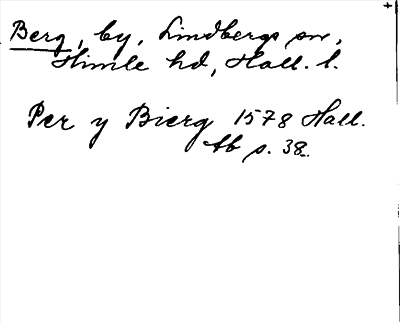 Berg, by, Lindbergs sn,
Himle hd, Hall. l.
Per y Bierg 1578 Hall.
tb s. 38.